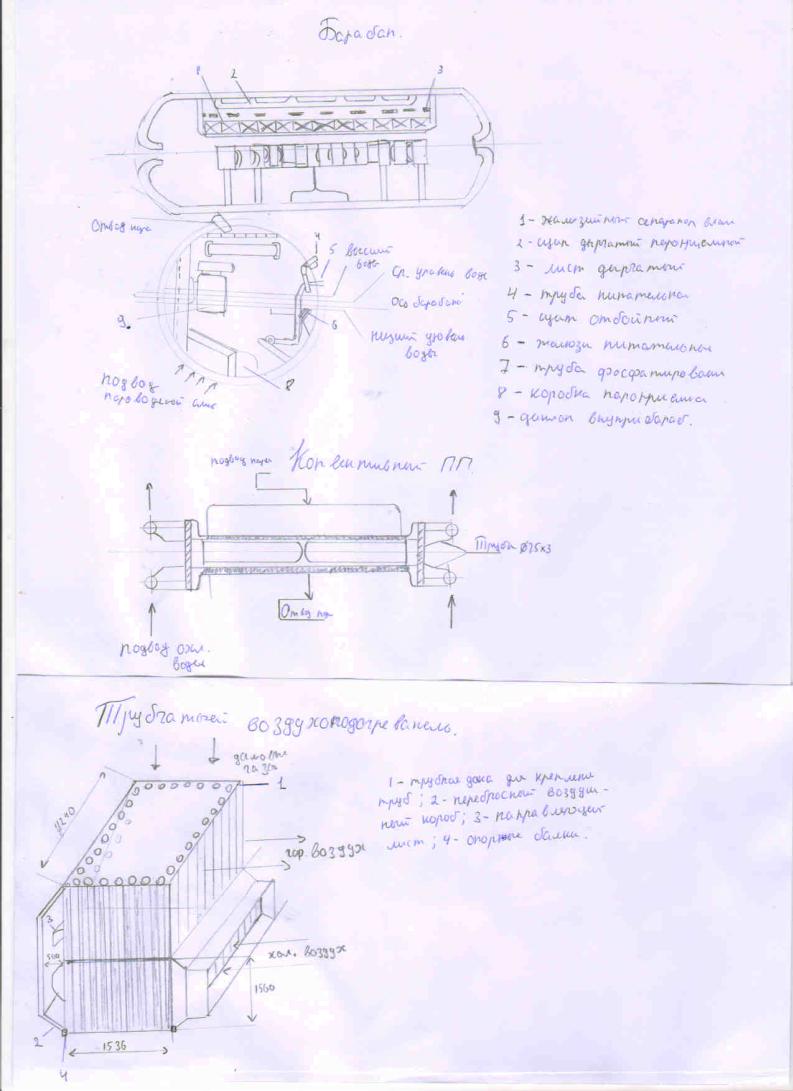 Барабан.
1
2
3
Отвод пара
4
5
высший
воды
Ср. уровень воды
Ось барабана
6
низший уровень
воды
9
8
подвод
пароводяной смис
1 - жалюзийный сепаратор влаги
2 - щит дырчатый пароприемной
3 - лист дырчатый
4 - труба питательная
5 - щит отбойный
6 - жалюзи питательные
7 - труба фосфатирован
8 - коробка пароприемна
9 - циклон внутрибараб.
Конвективный ПП
подвод пара
Труба ø25x3
Отвод пара
подвод охл.
воды
Трубчатый воздухоподогреватель.
дымовые
газы
1
1 - трубная доска для креплени
труб; 2 - перебросной воздуш-
ный короб; 3 - направляющий
лист; 4 - опорные балки.
гор. воздух
3
500
хол. воздух
1560
2
1536
4